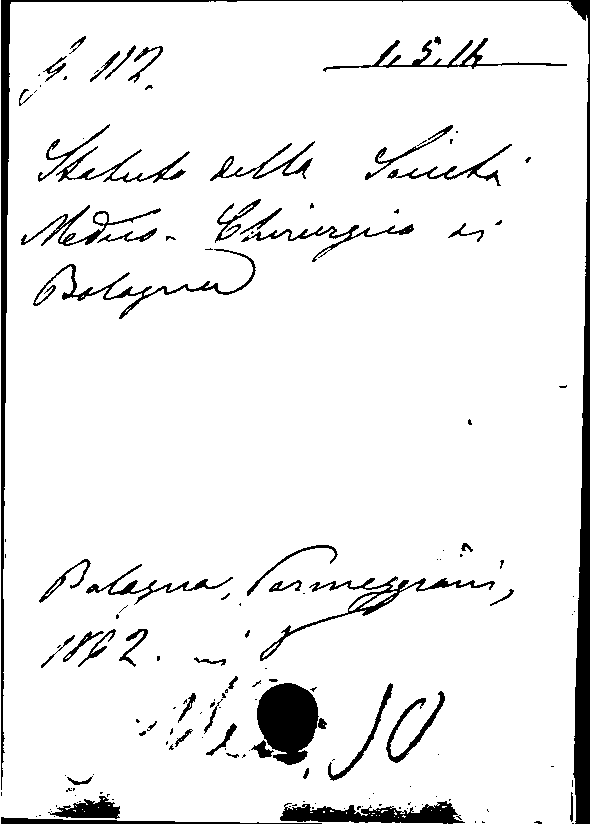 G. 112. 1.5.14
Statuto della Società
Medico-Chirurgica di
Bologna
Bologna, Parmeggiani,
1862.
10